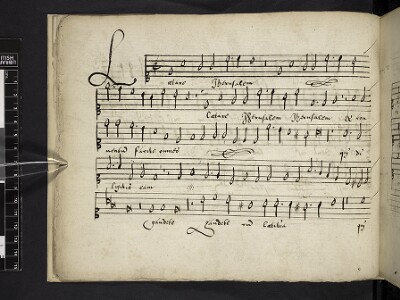 Letare Jherusalem
Letare Jherusalem Jherusalem et con
ventum facite omnes qui di
ligitis eam
gaudete gaudete cum Letitia